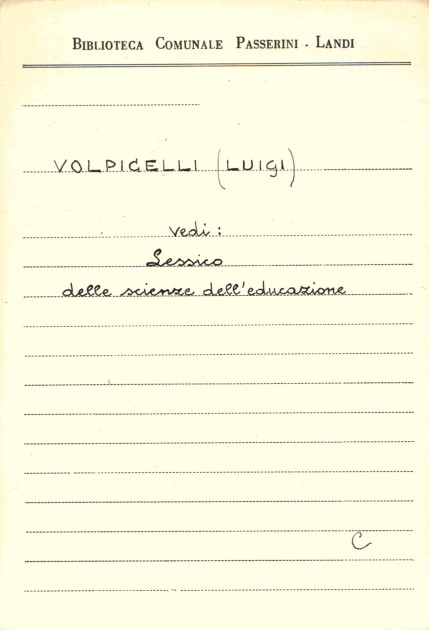 BIBLIOTECA COMUNALE PASSERINI - LANDI
VOLPICELLI (LUIGI)
vedi:
Lessico
delle scienze dell'educazione
C